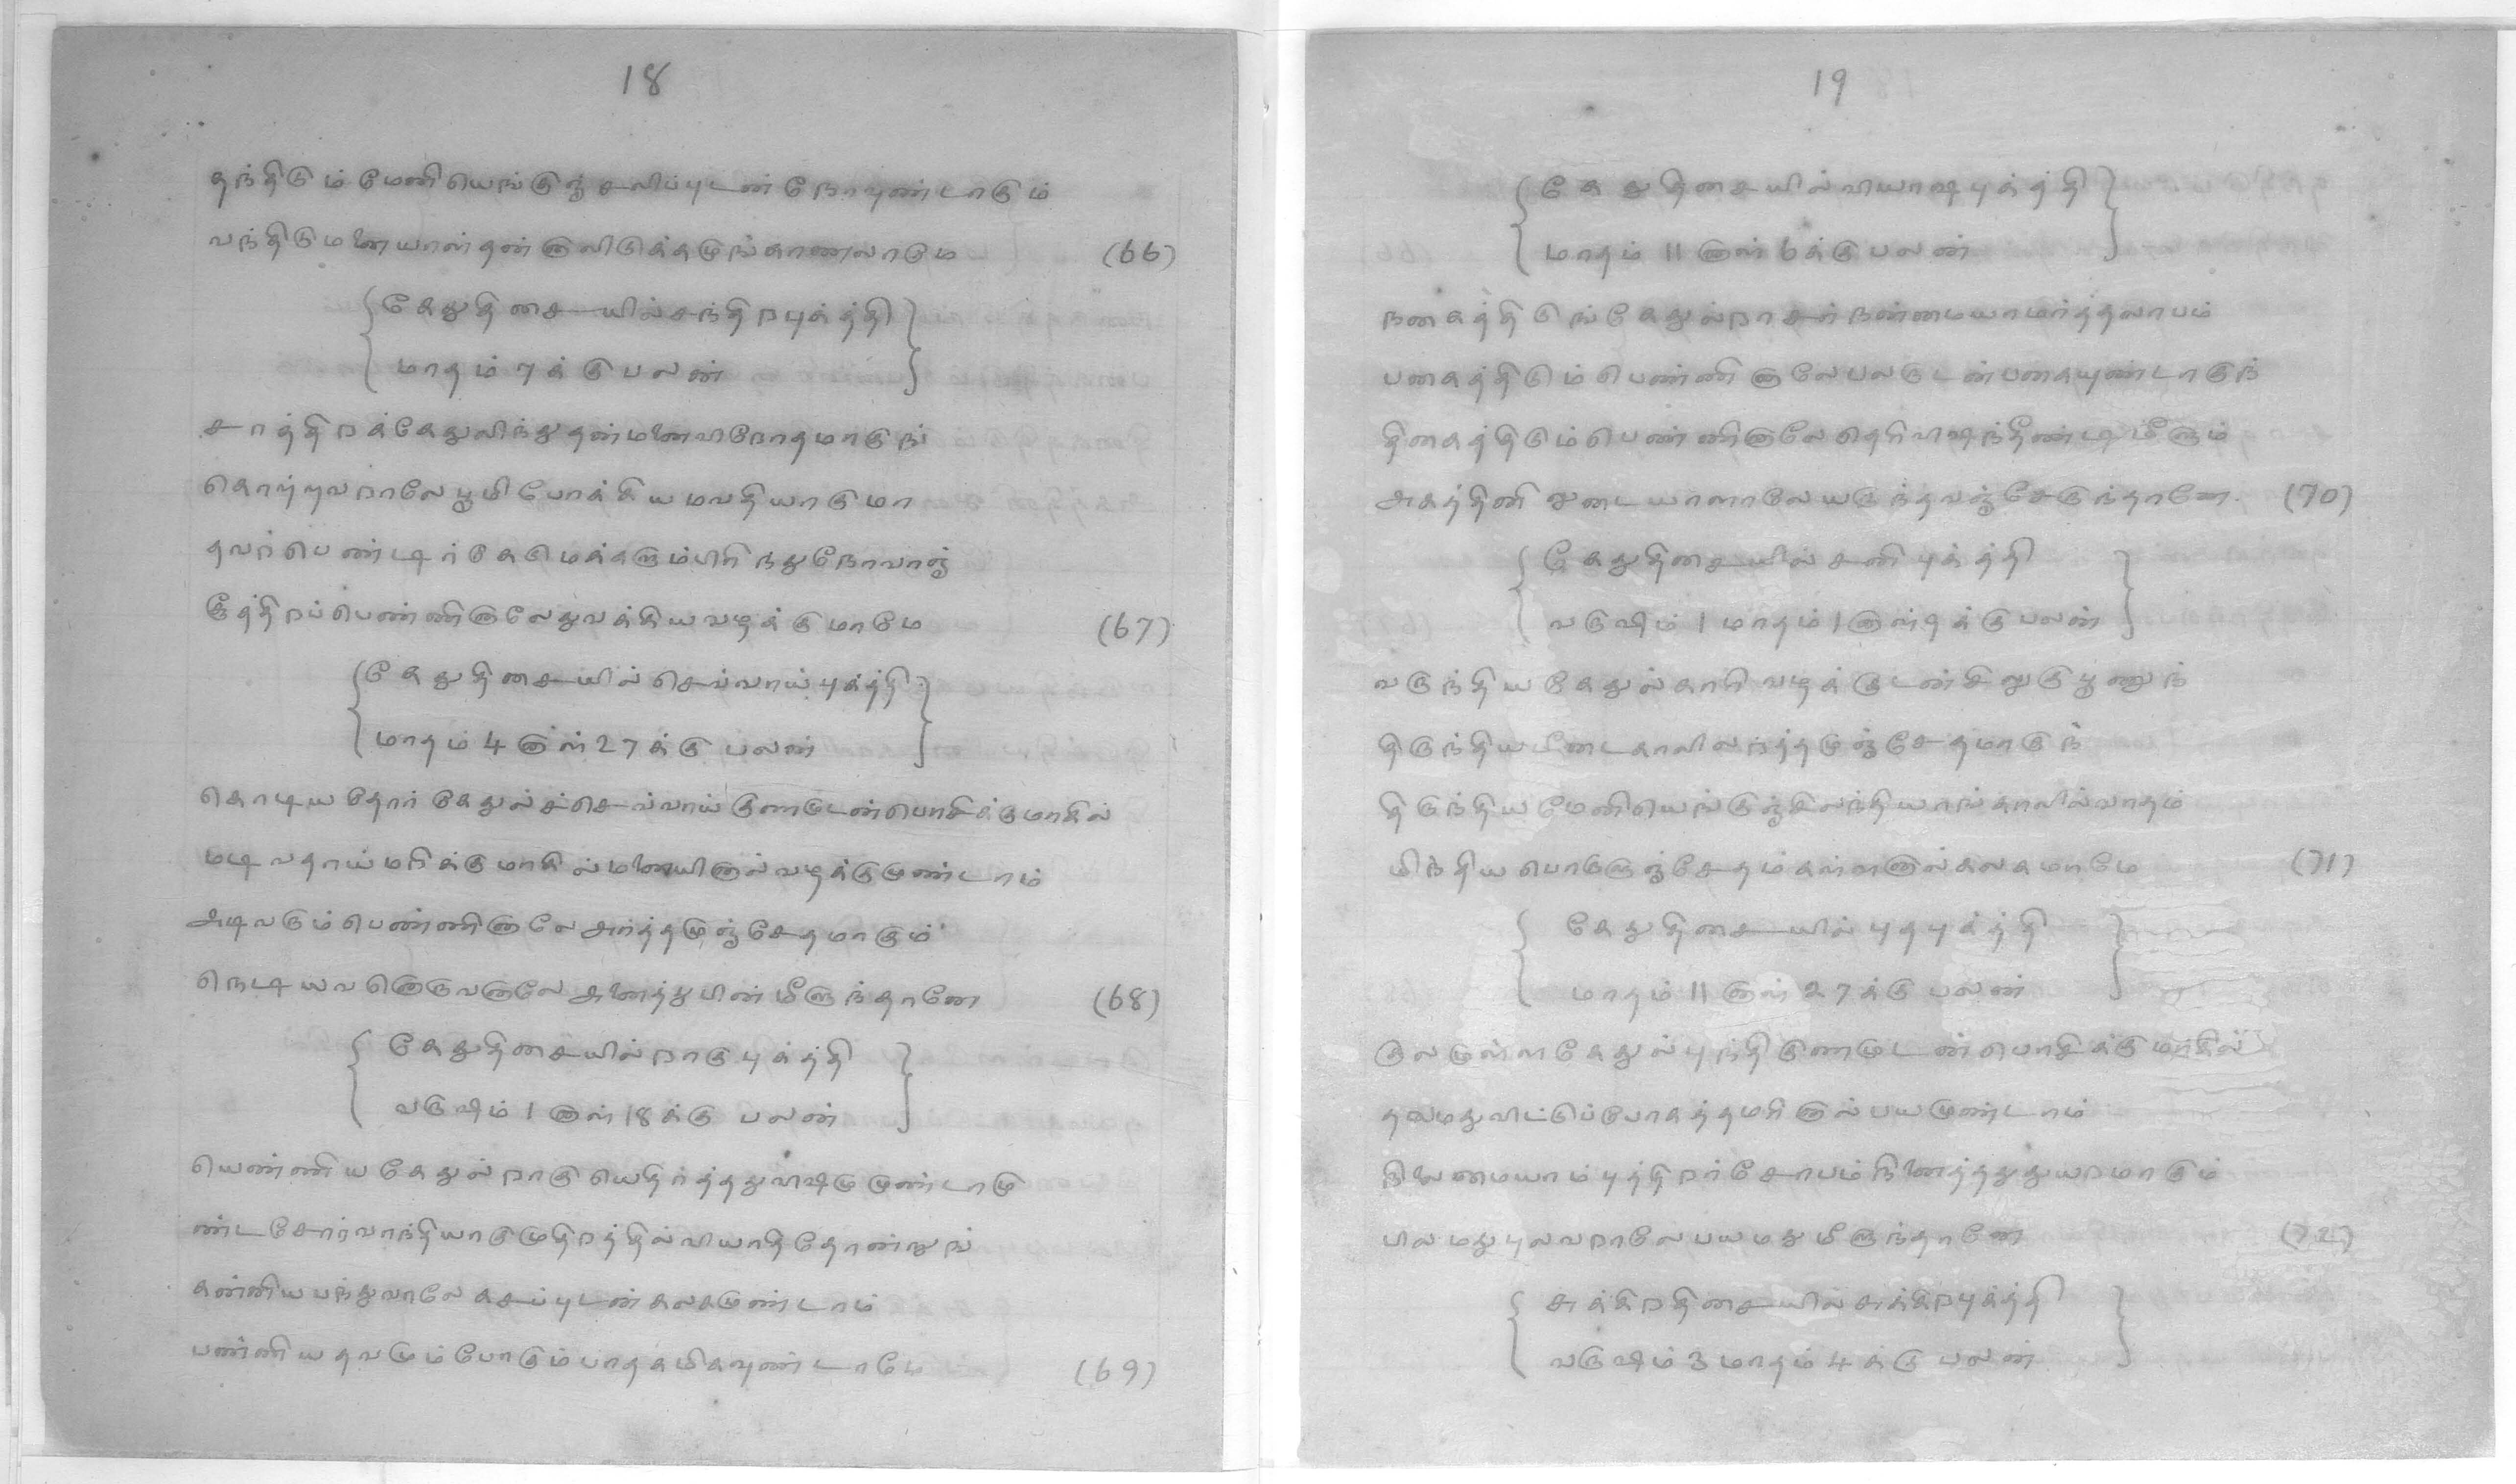 18
தந்திடும் மேனியெங்குஞ் சலிப்புடன் நோவுண்டாகும்
வந்திடுமனையாள் தன்னுலிடுக்கமுங்காணலாமே (66)
கேதுதிசையில்சந்திறபுக்த்தி
மாதம் 7க்கு பலன்
சாத்திறக்கேதுவிந்து தன்மனைவிரோதமாகுங்
கொற்றவறாலே பூமி போக்கிய மவதியாகுமா
தவற் பெண்டிர் கேடு மக்களும்பிரிந்துநோவாஞ்
சூத்திறப்பெண்ணினாலே துவக்கிய வழக்குமாமே (67)
கேதுதிசையில் செவ்வாய் புக்த்தி
மாதம் 4 னாள் 27க்கு பலன்
கொடியதோர் கேதுல்ச்செவ்வாய் குணமுடன்பொசிக்குமாகில்
மடிவதாய் மரிக்குமாகில் மனையினால் வழக்குமுண்டாம்
அடிவரும் பெண்ணினாலே அர்த்தமுஞ்சேதமாகும்
நெடியவனொருவனாலே அனைத்துபின் மீளுந்தானே (68)
கேதுதிசையில் றாகு புக்த்தி
வருஷம் 1 னாள் 18க்கு பலன்
யெண்ணிய கேதுல் றாகு யெதிர்த்தது விஷமுமுண்டாமு
ண்டசோர்வாந்தியாகுமுதிறத்தில் வியாதி தோண்றுங்
கன்னிய பந்துவாலே கசப்புடன் கலகமுண்டாம்
பண்ணிய தவமும் போகும் பாதகமிகவுண்டாமே (69)
19
கேதுதிசையில் வியாஷபுக்த்தி
மாதம் 11 னாள் 6க்கு பலன்
நகைத்திடுங் கேதுல்றாசர் நண்மையாமர்த்தலாபம்
பகைத்திடும் பெண்ணினாலே பலருடன் பகையுண்டாகுந்
திகைத்திடும் பெண்ணினாலே தெரிவிஷந்தீண்டி மீளும்
அகத்தினிலுடையாளாலே யருந்தவஞ் சேருந்தானே. (70)
கேதுதிசையில் சனி புக்த்தி
வருஷம் 1 மாதம் 1 னாள் 9க்கு பலன்
வருந்திய கேதுல்காரி வழக்குடன் சிறுகுபூணுந்
திருந்திய பீடைகாலிலற்த்தமுஞ்சேதமாகுந்
திருந்திய மேனியெங்குஞ்சிலந்தியாங்காலில்வாதம்
மிந்திய பொருளுஞ்சேதம் கள்ளனால் கலகமாமே (71)
கேதுதிசையில் புதபுக்த்தி
மாதம் 11 னாள் 27க்கு பலன்
குலமுள்ள கேதுல்புந்தி குணமுடன் பொசிக்குமாகில்
தலமதுவிட்டுப்போகத்தமரினால் பயமுண்டாம்
நிலைமையாம் புத்திறர்சோபம் நினைத்ததுதுயறமாகும்
பிலமதுபுலவறாலே பயமது மீளுந்தானே (72)
சுக்கிறதிசையில்சுக்கிறபுக்த்தி
வருஷம் 3 மாதம் 4க்கு பலன்